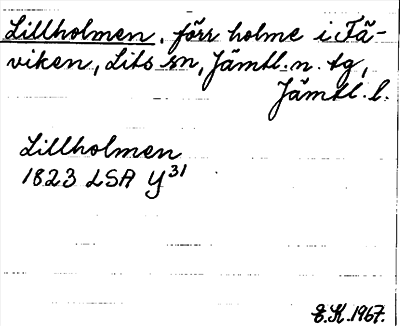 Lillholmen, förr holme i Fä-
viken, Lits sn, Jämtl. n. tg,
Jämtl. l.
Lillholmen
1823 LSA Y³¹
E.K. 1967.